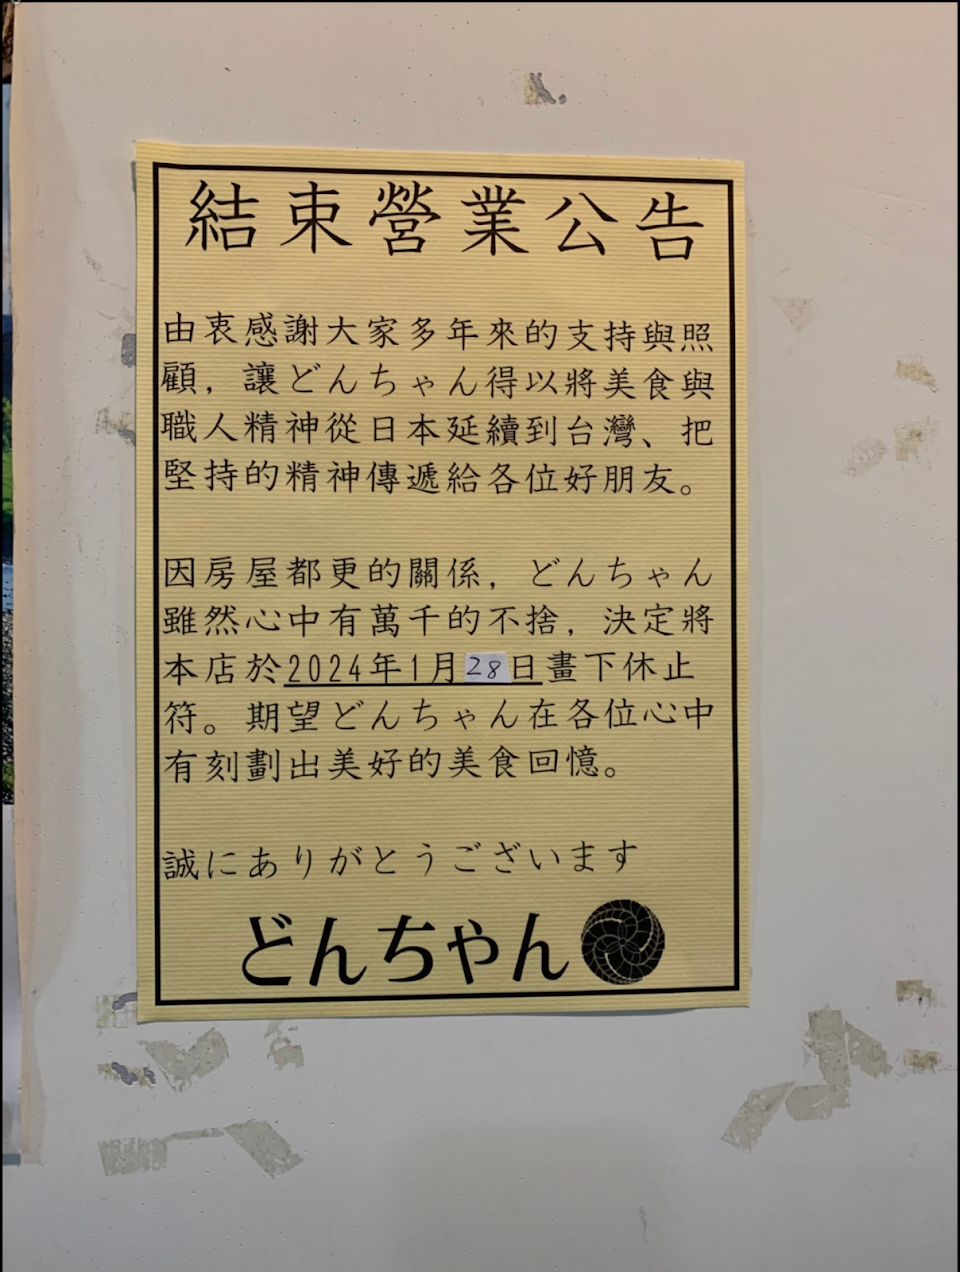 結束營業公告
由衷感謝大家多年來的支持與照
顧，讓どんちゃん得以將美食與
職人精神從日本延續到台灣、把
堅持的精神傳遞給各位好朋友。
因房屋都更的關係，どんちゃん
雖然心中有萬千的不捨，決定將
本店於2024年1月28日畫下休止
符。期望どんちゃん在各位心中
有刻劃出美好的美食回憶。
誠にありがとうございます
どんちゃん